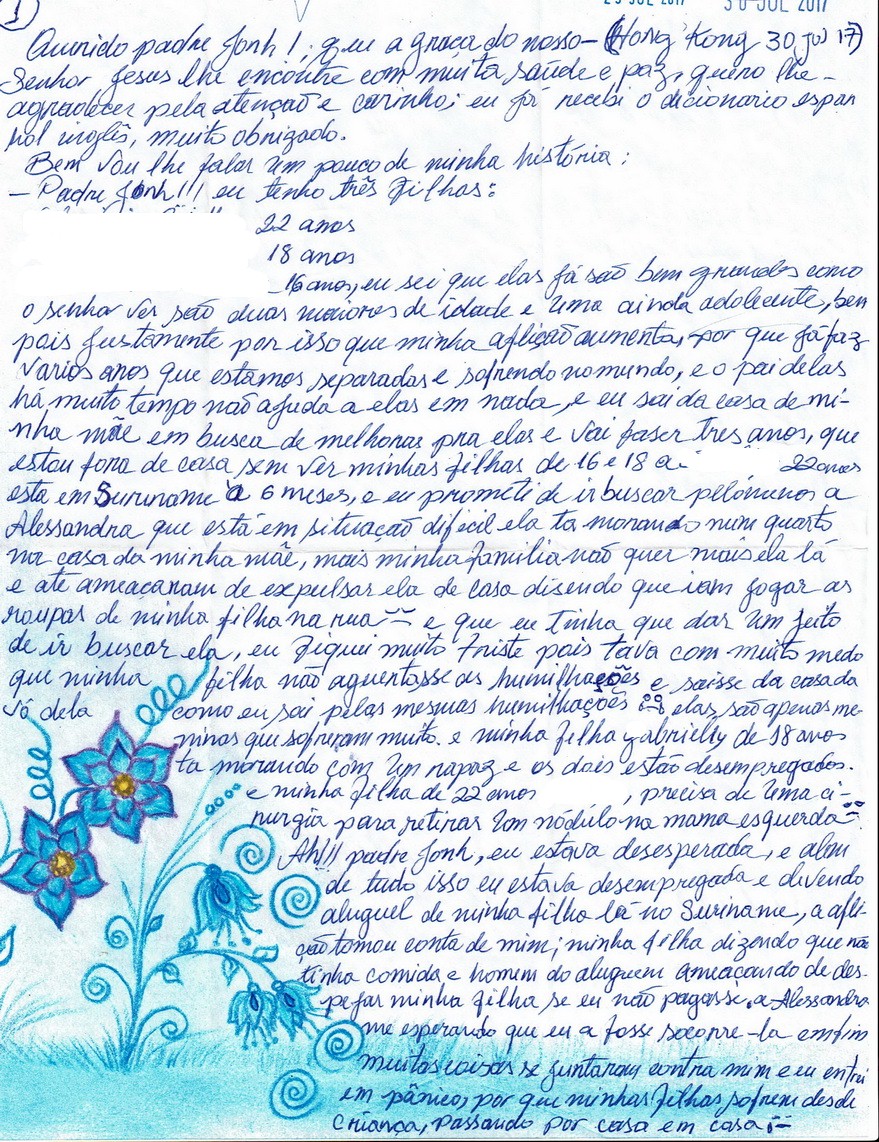 1
30 JUL 2017
Querido padre Jonh!, que a graça do nosso- (Hong Kong 30 jul 17)
Senhor Jesus lhe encontre com muita saúde e paz, quero lhe-
agradecer pela atenção e carinho; eu já recebi o dicionario espan
hol inglês, muito obrigado.
Bem vou lhe falar um pouco de minha história:
- Padre Jonh!!! eu tenho três filhas:
22 anos
18 anos
-16 anos, eu sei que elas já são bem grandes como
o senhor ver são duas maiores de idade e uma ainda adolecente, bem
pois justamente por isso que minha aflição aumenta, por que já faz
varios anos que estamos separadas e sofrendo no mundo, e o pai delas
há muito tempo não ajuda a elas em nada, e eu saí da casa de mi-
nha mãe em busca de melhoras pra elas e vai faser tres anos, que
estou fora de casa sem ver minhas filhas de 16 e 18 a 22 anos
esta em Suriname a 6 meses, e eu prometi de ir buscar pelómenos a
Alessandra que está em situação dificil ela ta morando num quarto
na casa da minha mãe, mais minha familia não quer mais ela lá
e até ameaçaram de expulsar ela de casa disendo que iam jogar as
roupas de minha filha na rua e que eu tinha que dar um jeito
de ir buscar ela, eu fiquei muito triste pois tava com muito medo
que minha filha não aguentasse as humilhações e saisse da casa da
vó dela como eu sai pelas mesmas humilhações elas são apenas me-
ninas que sofreram muito. e minha filha gabrielly de 18 anos
ta morando com um rapaz e os dois estão desempregados.
e minha filha de 22 anos , precisa de uma ci-
rurgia para retirar um nódulo na mama esquerda
Ah!!! padre Jonh, eu estava desesperada, e alem
de tudo isso eu estava desempregada e devendo
aluguel de minha filha lá no Suriname, a afli-
ção tomou conta de mim; minha filha dizendo que não
tinha comida e homem do aluguem ameaçando de des-
pejar minha filha se eu não pagasse, a Alessandra
me esperando que eu a fosse socorre-la emfim
muitas coisas se juntaram contra mim e eu entrei
em pânico, por que minhas filhas sofrem desde
criança, passando por casa em casa